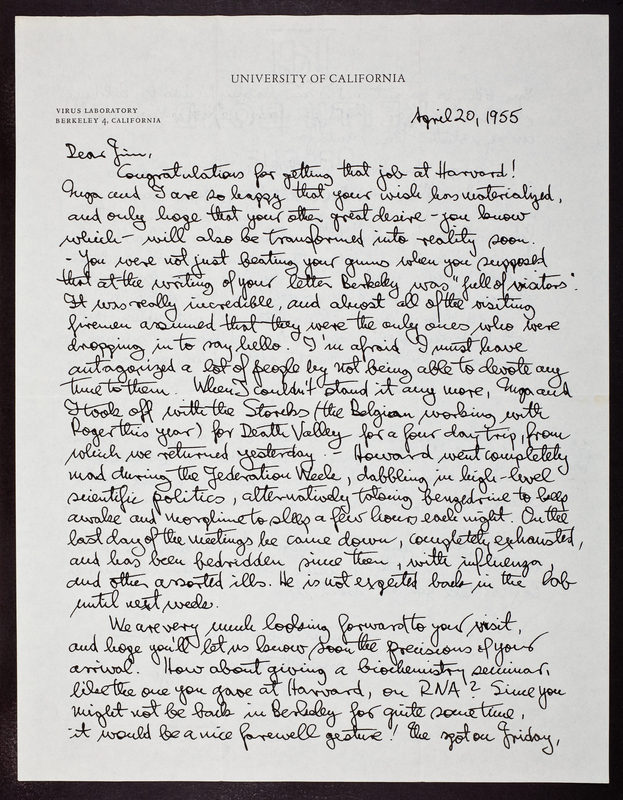 UNIVERSITY OF CALIFORNIA
VIRUS LABORATORY
BERKELEY 4, CALIFORNIA
April 20, 1955
Dear Jim,
Congratulations for getting that job at Harvard!
Inga and I are so happy that your wish has materialized,
and only hope that your other great desire - you know
which - will also be transformed into reality soon.
- You were not just beating your gums when you supposed
that at the writing of your letter Berkeley was "full of visitors".
It was really incredible, and almost all of the visiting
firemen assumed that they were the only ones who were
dropping in to say hello. I'm afraid I must have
antagonized a lot of people by not being able to devote any
time to them. When I couldn't stand it any more, Inga and
I took off with the (the Belgian working with
Roger this year) for Death Valley for a four day trip, from
which we returned yesterday. - Howard went completely
mad during the Federation Week, dabbling in high-level
scientific politics, alternatively taking benzedrine to keep
awake and morphine to sleep a few hours each night. On the
last day of the meetings he came down, completely exhausted,
and has been bedridden since then, with influenza
and other assorted ills. He is not expected back in the lab
until next week.
We are very much looking forward to your visit,
and hope you'll let us know soon the precisions of your
arrival. How about giving a biochemistry seminar,
like the one you gave at Harvard, on RNA? Since you
might not be back in Berkeley for quite some time,
it would be a nice farewell gesture! The spot on Friday,